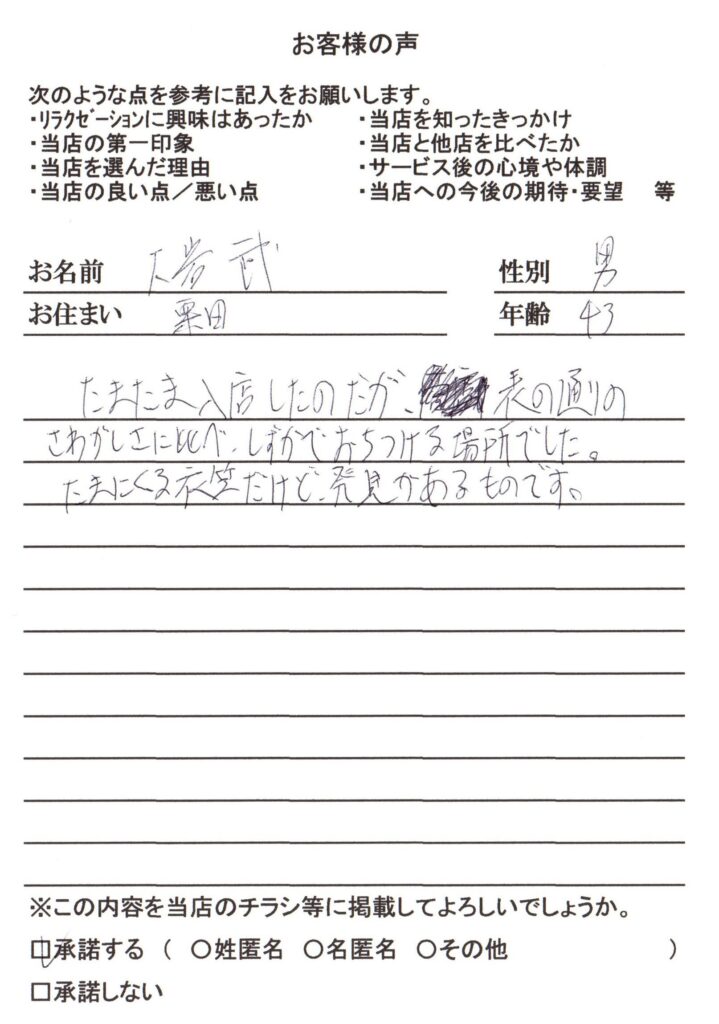 お客様の声
次のような点を参考に記入をお願いします。
・ﾘﾗｸｾﾞｰｼｮﾝに興味はあったか ・当店を知ったきっかけ
・当店の第一印象 ・当店と他店を比べたか
・当店を選んだ理由 ・サービス後の心境や体調
・当店の良い点／悪い点 ・当店への今後の期待・要望 等
お名前 大岩 武 性別 男
お住まい 粟田 年齢 43
たまたま入店したのだが、表の通りの
さわがしさに比べ、しずかでおちつける場所でした。
たまにくる衣笠だけど、発見があるものです。
※この内容を当店のチラシ等に掲載してよろしいでしょうか。
☑承諾する （ ○姓匿名 ○名匿名 ○その他 ）
□承諾しない